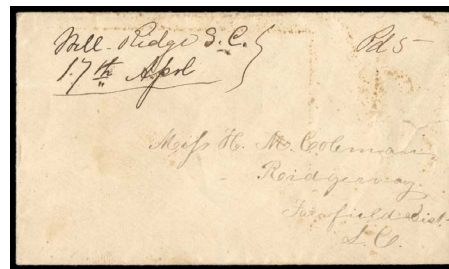 Mill-Ridge S.C.
17th April
Pd 5
Miss H. M. Coleman
Ridgeway
Fairfield Dist.
S.C.